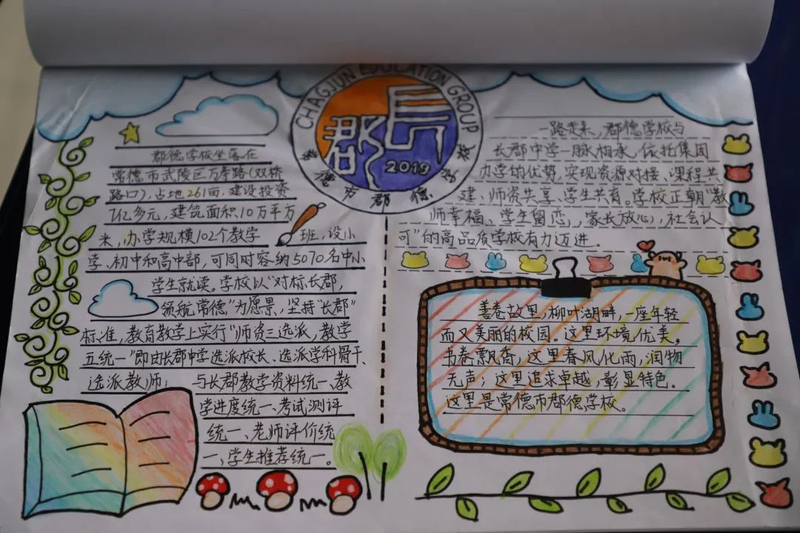 CHAGJUN EDUCATION GROUP
郡
长
2019
常德市郡德学校
郡德学校坐落在
常德市武陵区万寿路(双桥
路口),占地261亩,建设投资
7亿多元,建筑面积10万平方
米,办学规模102个教学
班,设小
学、初中和高中部,可同时容纳5070名中小
学生就读。学校以“对标长郡,
领航常德”为愿景,坚持“长郡”
标准,教育教学上实行“师资三选派,教学
五统一”即由长郡中学选派校长、选派学科骨干、
选派教师, 与长郡教学资料统一、教
学进度统一、考试测评
统一、老师评价统
一、学生推荐统一。
一路走来,郡德学校与
长郡中学一脉相承,依托集团
办学的优势,实现资源对接、课程共
建、师资共享、学生共育。学校正朝“教
师幸福、学生留恋,家长放心,社会认
可”的高品质学校有力迈进。
善卷故里,柳叶湖畔,一座年轻
而又美丽的校园。这里环境优美,
书卷飘香;这里春风化雨,润物
无声;这里追求卓越,彰显特色。
这里是常德市郡德学校。